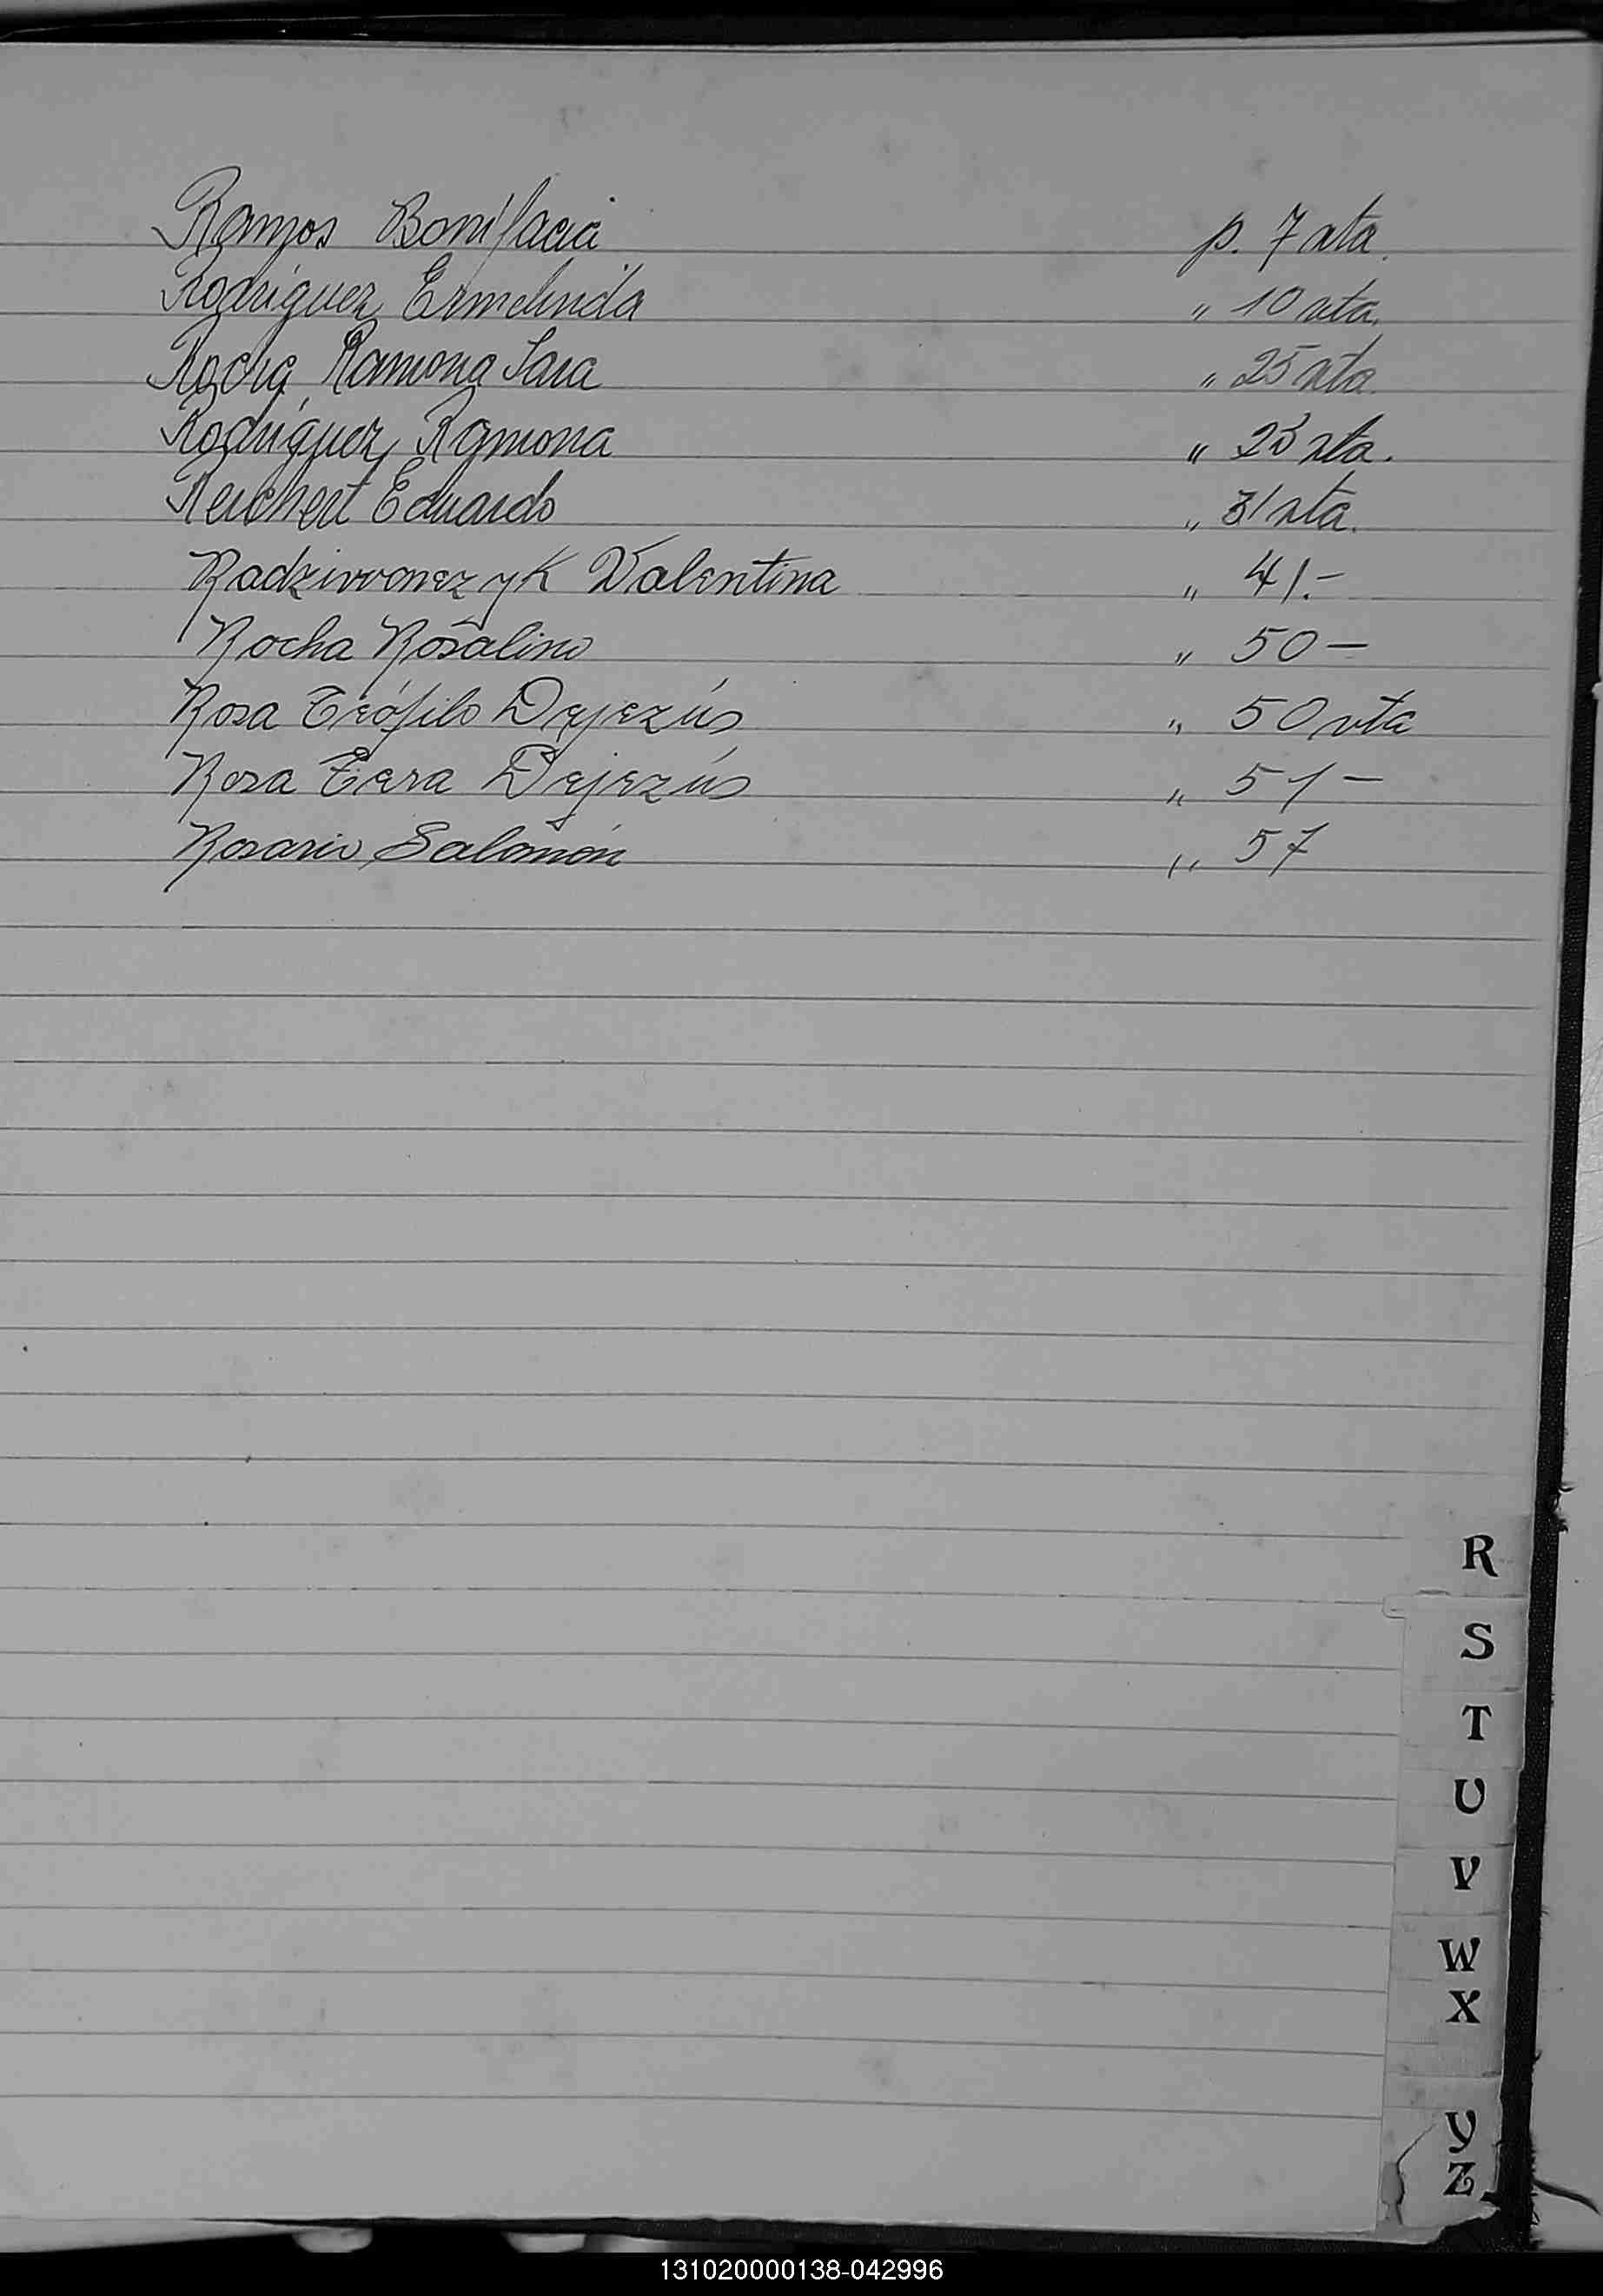 Ramos Bonifacia p. 7 vta.
Rodriguez Ermelinda " 10 vta.
Rocha Ramona Sara " 25 vta.
Rodriguez Ramona " 25 vta.
Reichert Eduardo " 31 vta.
Radzivvonezyk Valentina " 41.-
Rocha Rosalino " 50 -
Rosa Teófilo Dejezús " 50 vta
Rosa Dejezús " 51 -
Rosario Salomón " 57
R
S
T
U
V
W
X
Y
Z
131020000138-042996